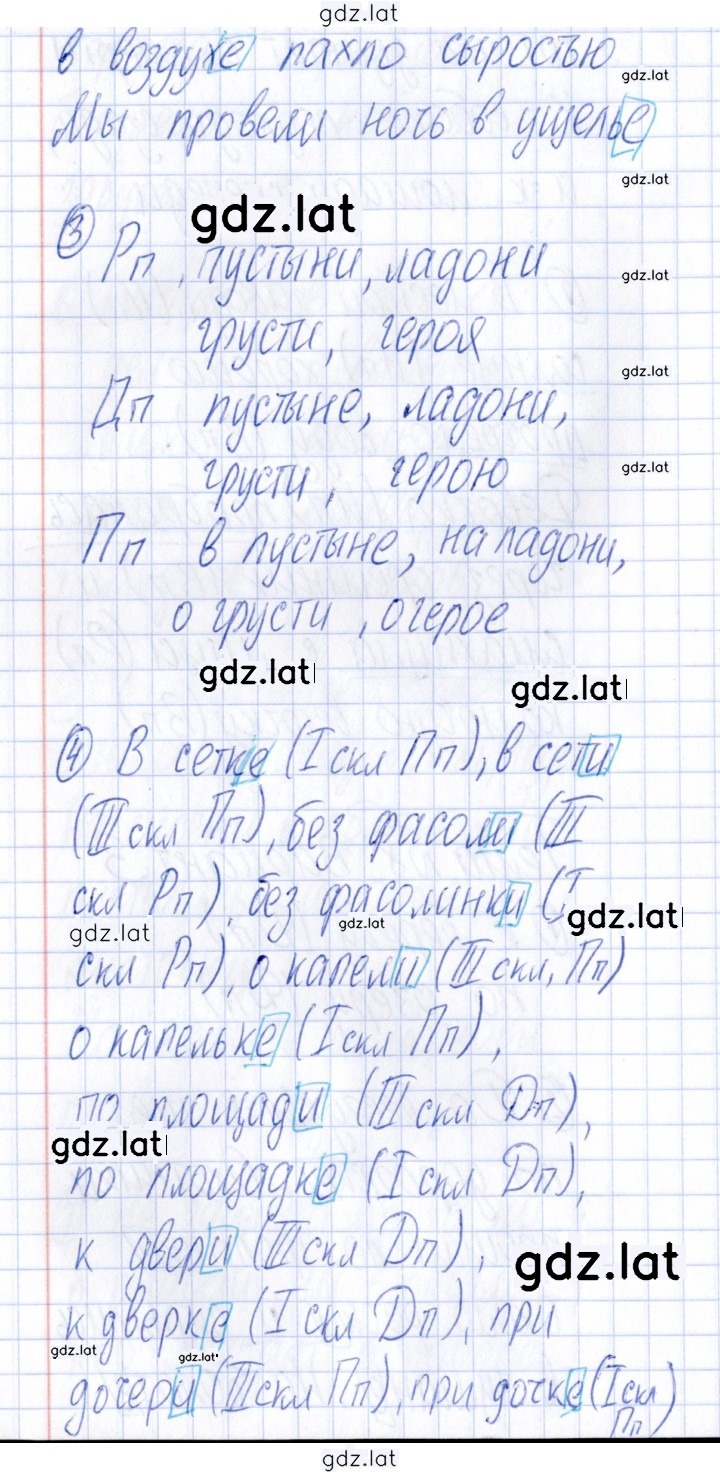 gdz.lat
в воздухе пахло сыростью
gdz.lat
Мы провели ночь в ущелье
gdz.lat
gdz.lat
3 Рп , пустыни, ладони
gdz.lat
грусти, героя
gdz.lat
Дп пустыне, ладони,
gdz.lat
грусти, герою
Пп в пустыне, на ладони,
о грусти , о герое
gdz.lat
gdz.lat
4 В сетке (I скл Пп), в сети
(III скл Пп), без фасоли (III
скл Рп), без фасолинки (I
gdz.lat
gdz.lat
gdz.lat
скл Рп), о капели (III скл, Пп)
о капельке (I скл Пп),
по площади (III скл Дп),
gdz.lat
по площадке (I скл Дп),
к двери (III скл Дп),
gdz.lat
к дверке (I скл Дп), при
gdz.lat
gdz.lat
дочери (III скл Пп), при дочке (I скл
Пп)
gdz.lat